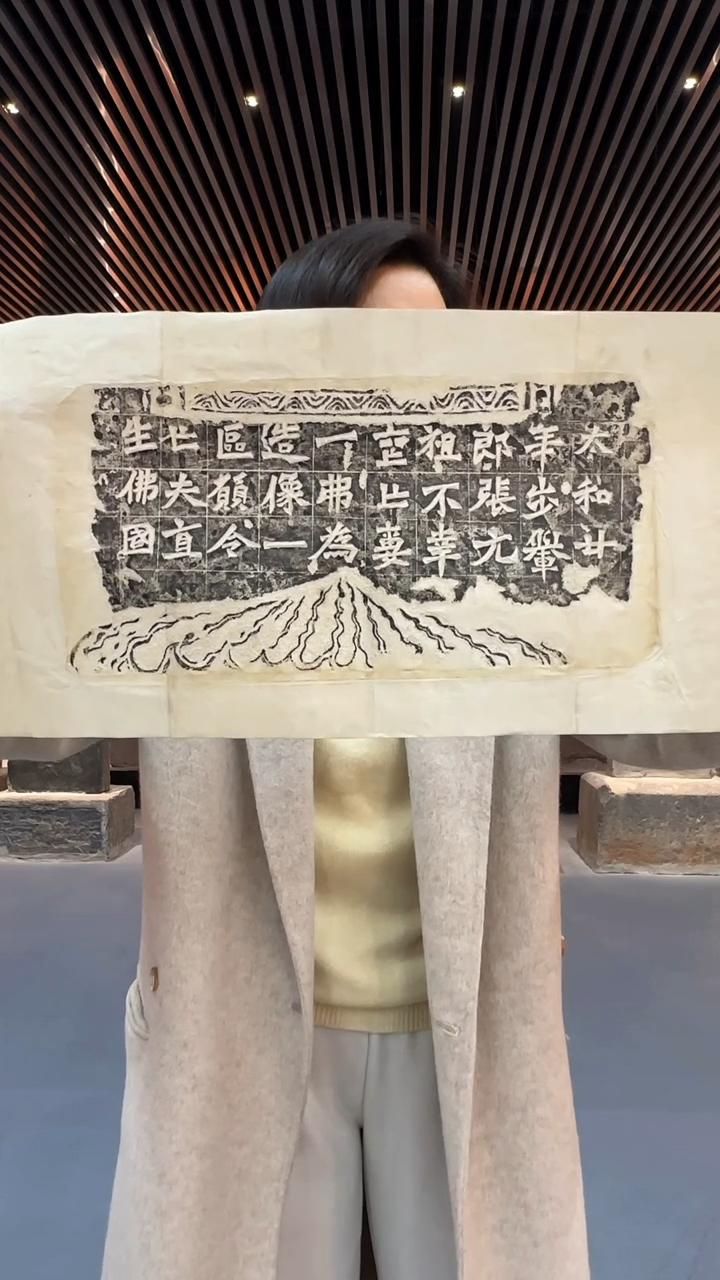 太和廿
年步輦
郎張元
祖不幸
喪亡妻
一弗為
造像一
區願令
亡夫直
生佛國